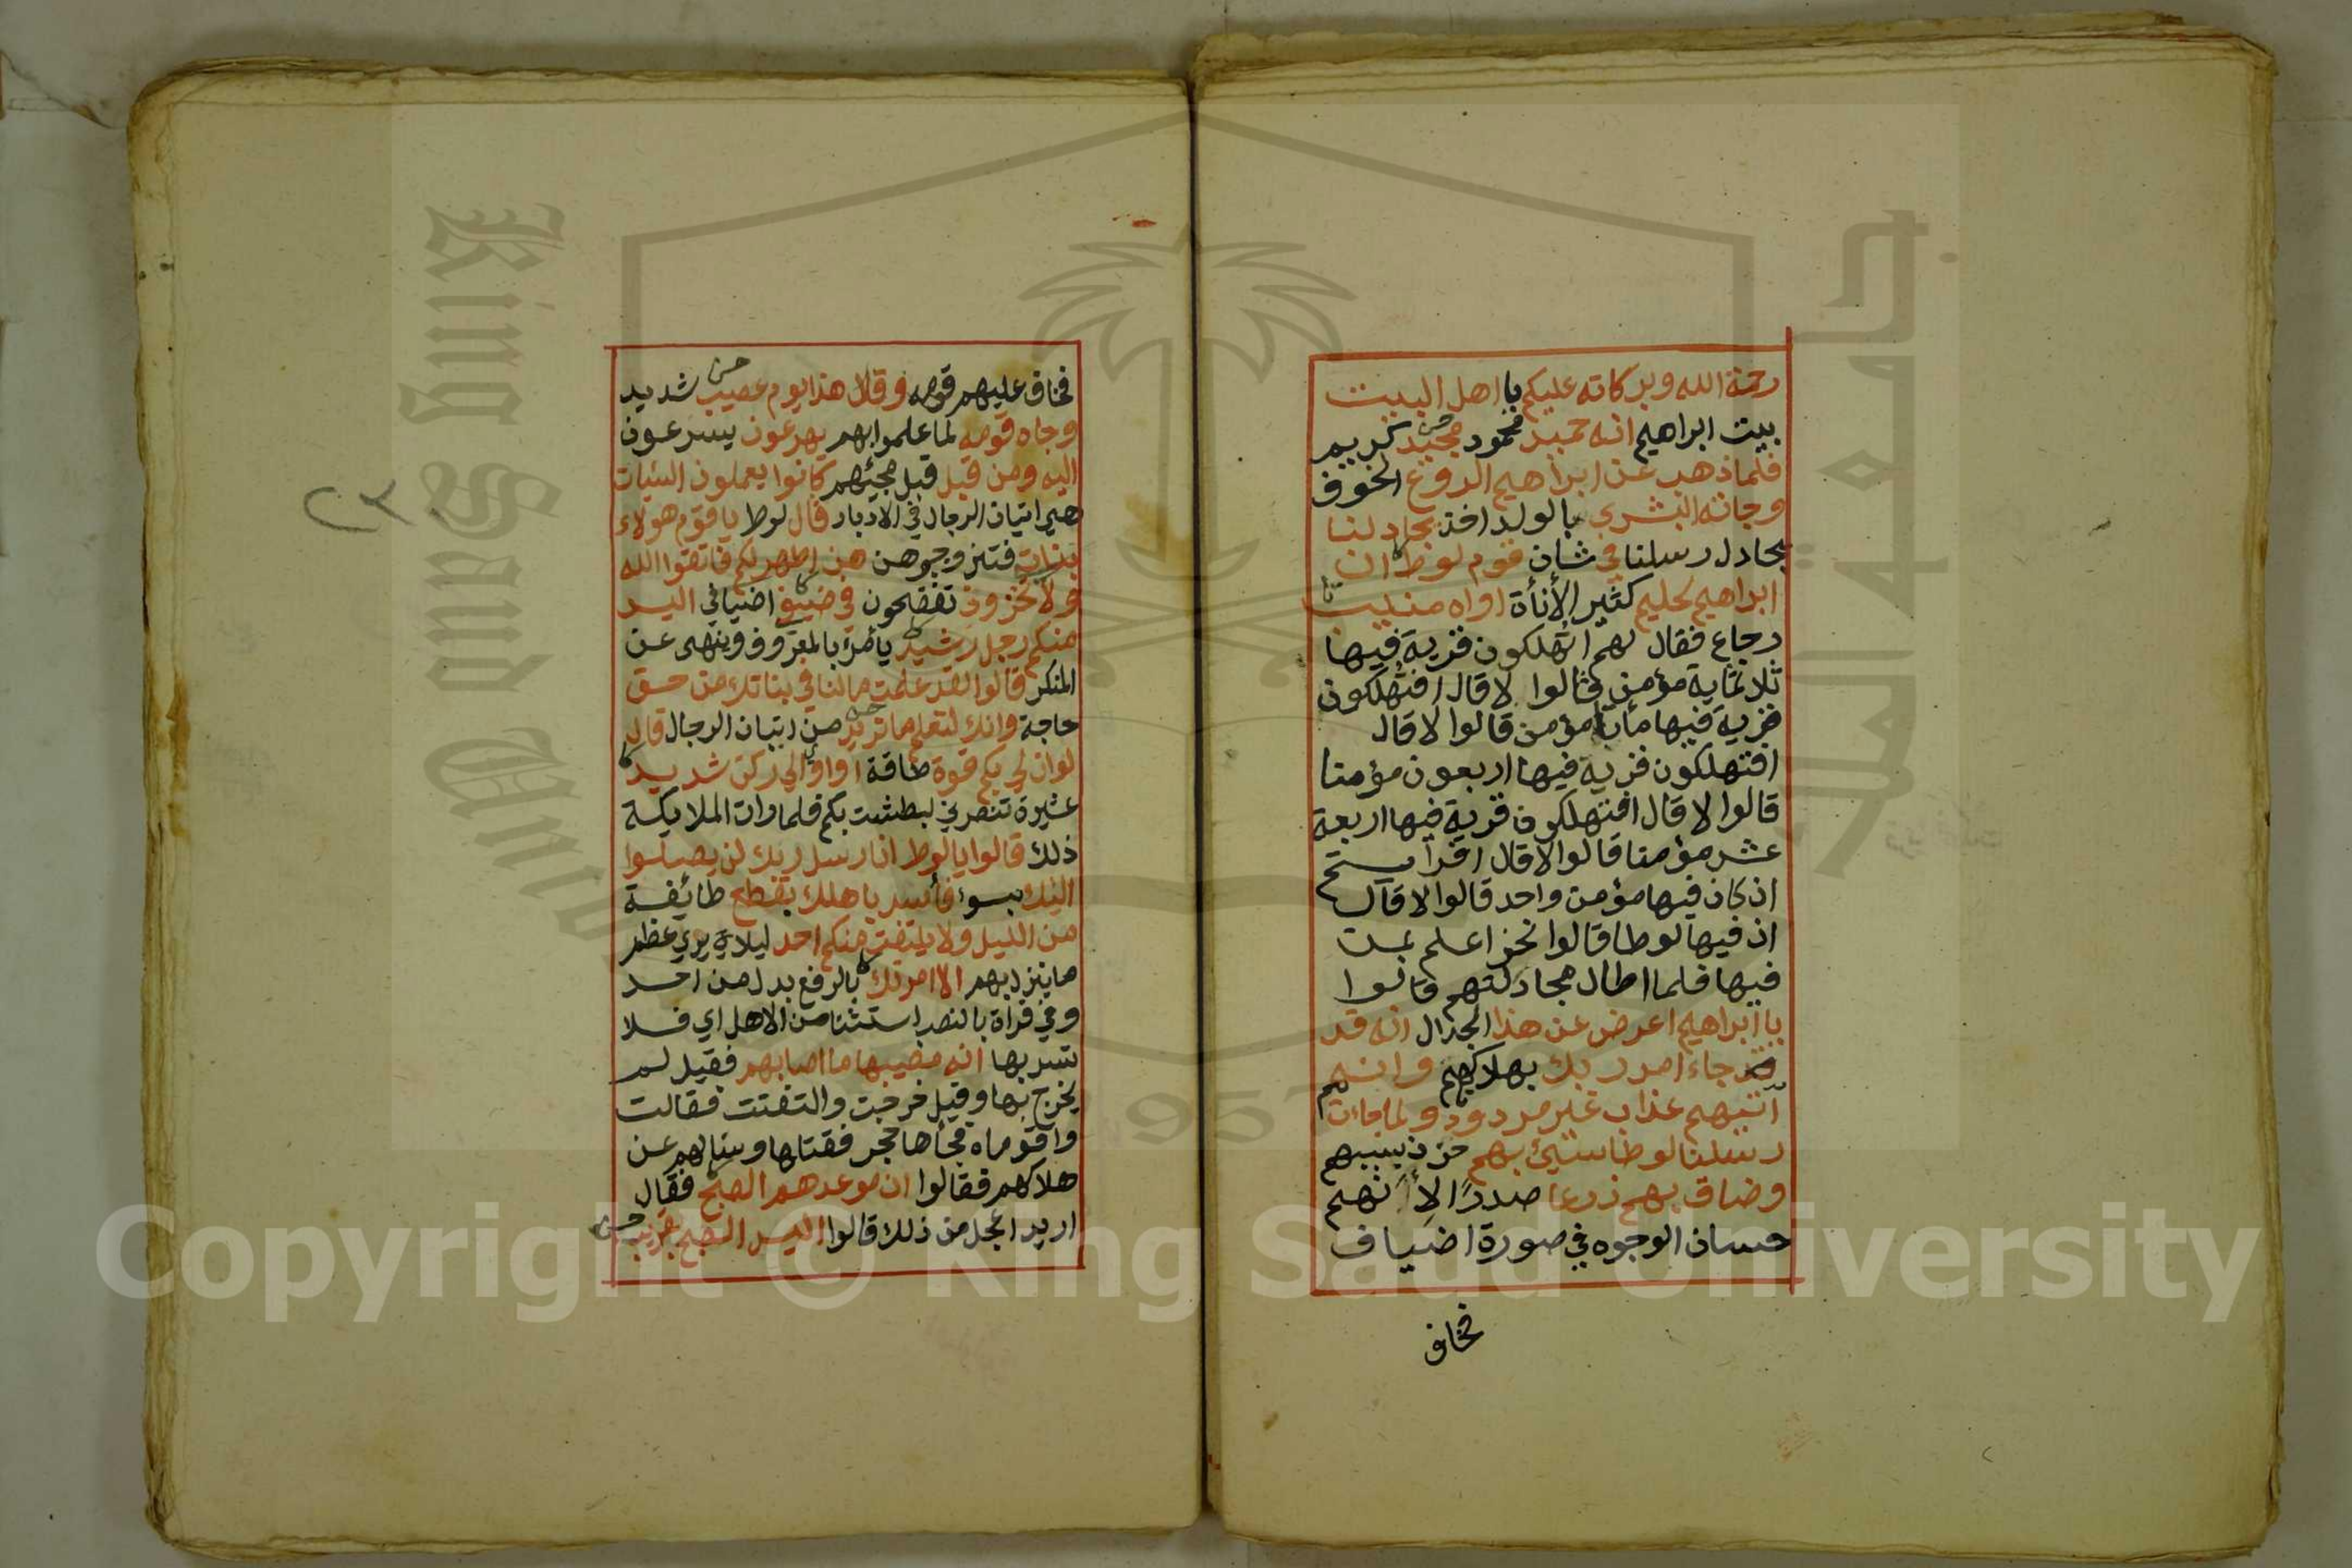 رحمة الله وبركاته عليكم يا اهل البيت
بيت ابراهيم انه حميد محمود مجيد كريم
فلما ذهب عن ابراهيم الروع الخوف
وجاته البشرى بالولد اخذ يجادلنا
يجادل رسلنا في شان قوم لوط ان
ابراهيم لحليم كثير الأناة اواه منيب
رجاع فقال لهم اتهلكون قرية فيها
ثلاثماية مؤمن قالوا لا قال افتهلكون
قرية فيها مأتا مؤمن قالوا لا قال
افتهلكون قرية فيها اربعون مؤمنا
قالوا لا قال افتهلكون قرية فيها اربعة
عشر مؤمنا قالوا لا قال افرايتم
ان كان فيها مؤمن واحد قالوا لا قال
ان فيها لوطا قالوا نحن اعلم بمن
فيها فلما اطال مجادلتهم قالوا
يا ابراهيم اعرض عن هذا الجدال انه قد
قد جاء امر ربك بهلاكهم وانهم
آتيهم عذاب غير مردود ولما جاءت
رسلنا لوطا سيئ بهم حزن بسببهم
وضاق بهم ذرعا صدرا لأنهم
حسان الوجوه في صورة اضياف
فخاف
فخاف عليهم قومه وقال هذا يوم عصيب شديد
وجاه قومه لما علموا بهم يهرعون يسرعون
اليه ومن قبل قبل مجيئهم كانوا يعملون السيئات
هي اتيان الرجال في الادبار قال لوط يا قوم هولاء
بناتي فتزوجوهن هن اطهر لكم فاتقوا الله
ولا تخزون تفضحون في ضيفي اضيافي اليس
منكم رجل رشيد يأمر بالمعروف وينهى عن
المنكر قالوا لقد علمت مالنا في بناتك من حق
حاجة وانك لتعلم ما نريد من اتيان الرجال قال
لو ان لي بكم قوة طاقة او اوي الي ركن شديد
عشيرة تنصرني لبطشت بكم فلما رات الملايكة
ذلك قالوا يا لوط انا رسل ربك لن يصلوا
اليك بسوء فأسر باهلك بقطع طائفة
من الليل ولا يلتفت منكم احد ليلا يري عظم
ما ينزل بهم الا امرتك بالرفع بدل من احد
وفي قراة بالنصب استثنا من الاهل اي فلا
تسر بها انه مصيبها ما اصابهم فقيل لم
يخرج بها وقيل خرجت والتفتت فقالت
واقوماه فجأها حجر فقتلها وسالهم عن
هلاكهم فقالوا ان موعدهم الصبح فقال
اريد اعجل من ذلك قالوا اليس الصبح بقريب
Copyright © King Saud University